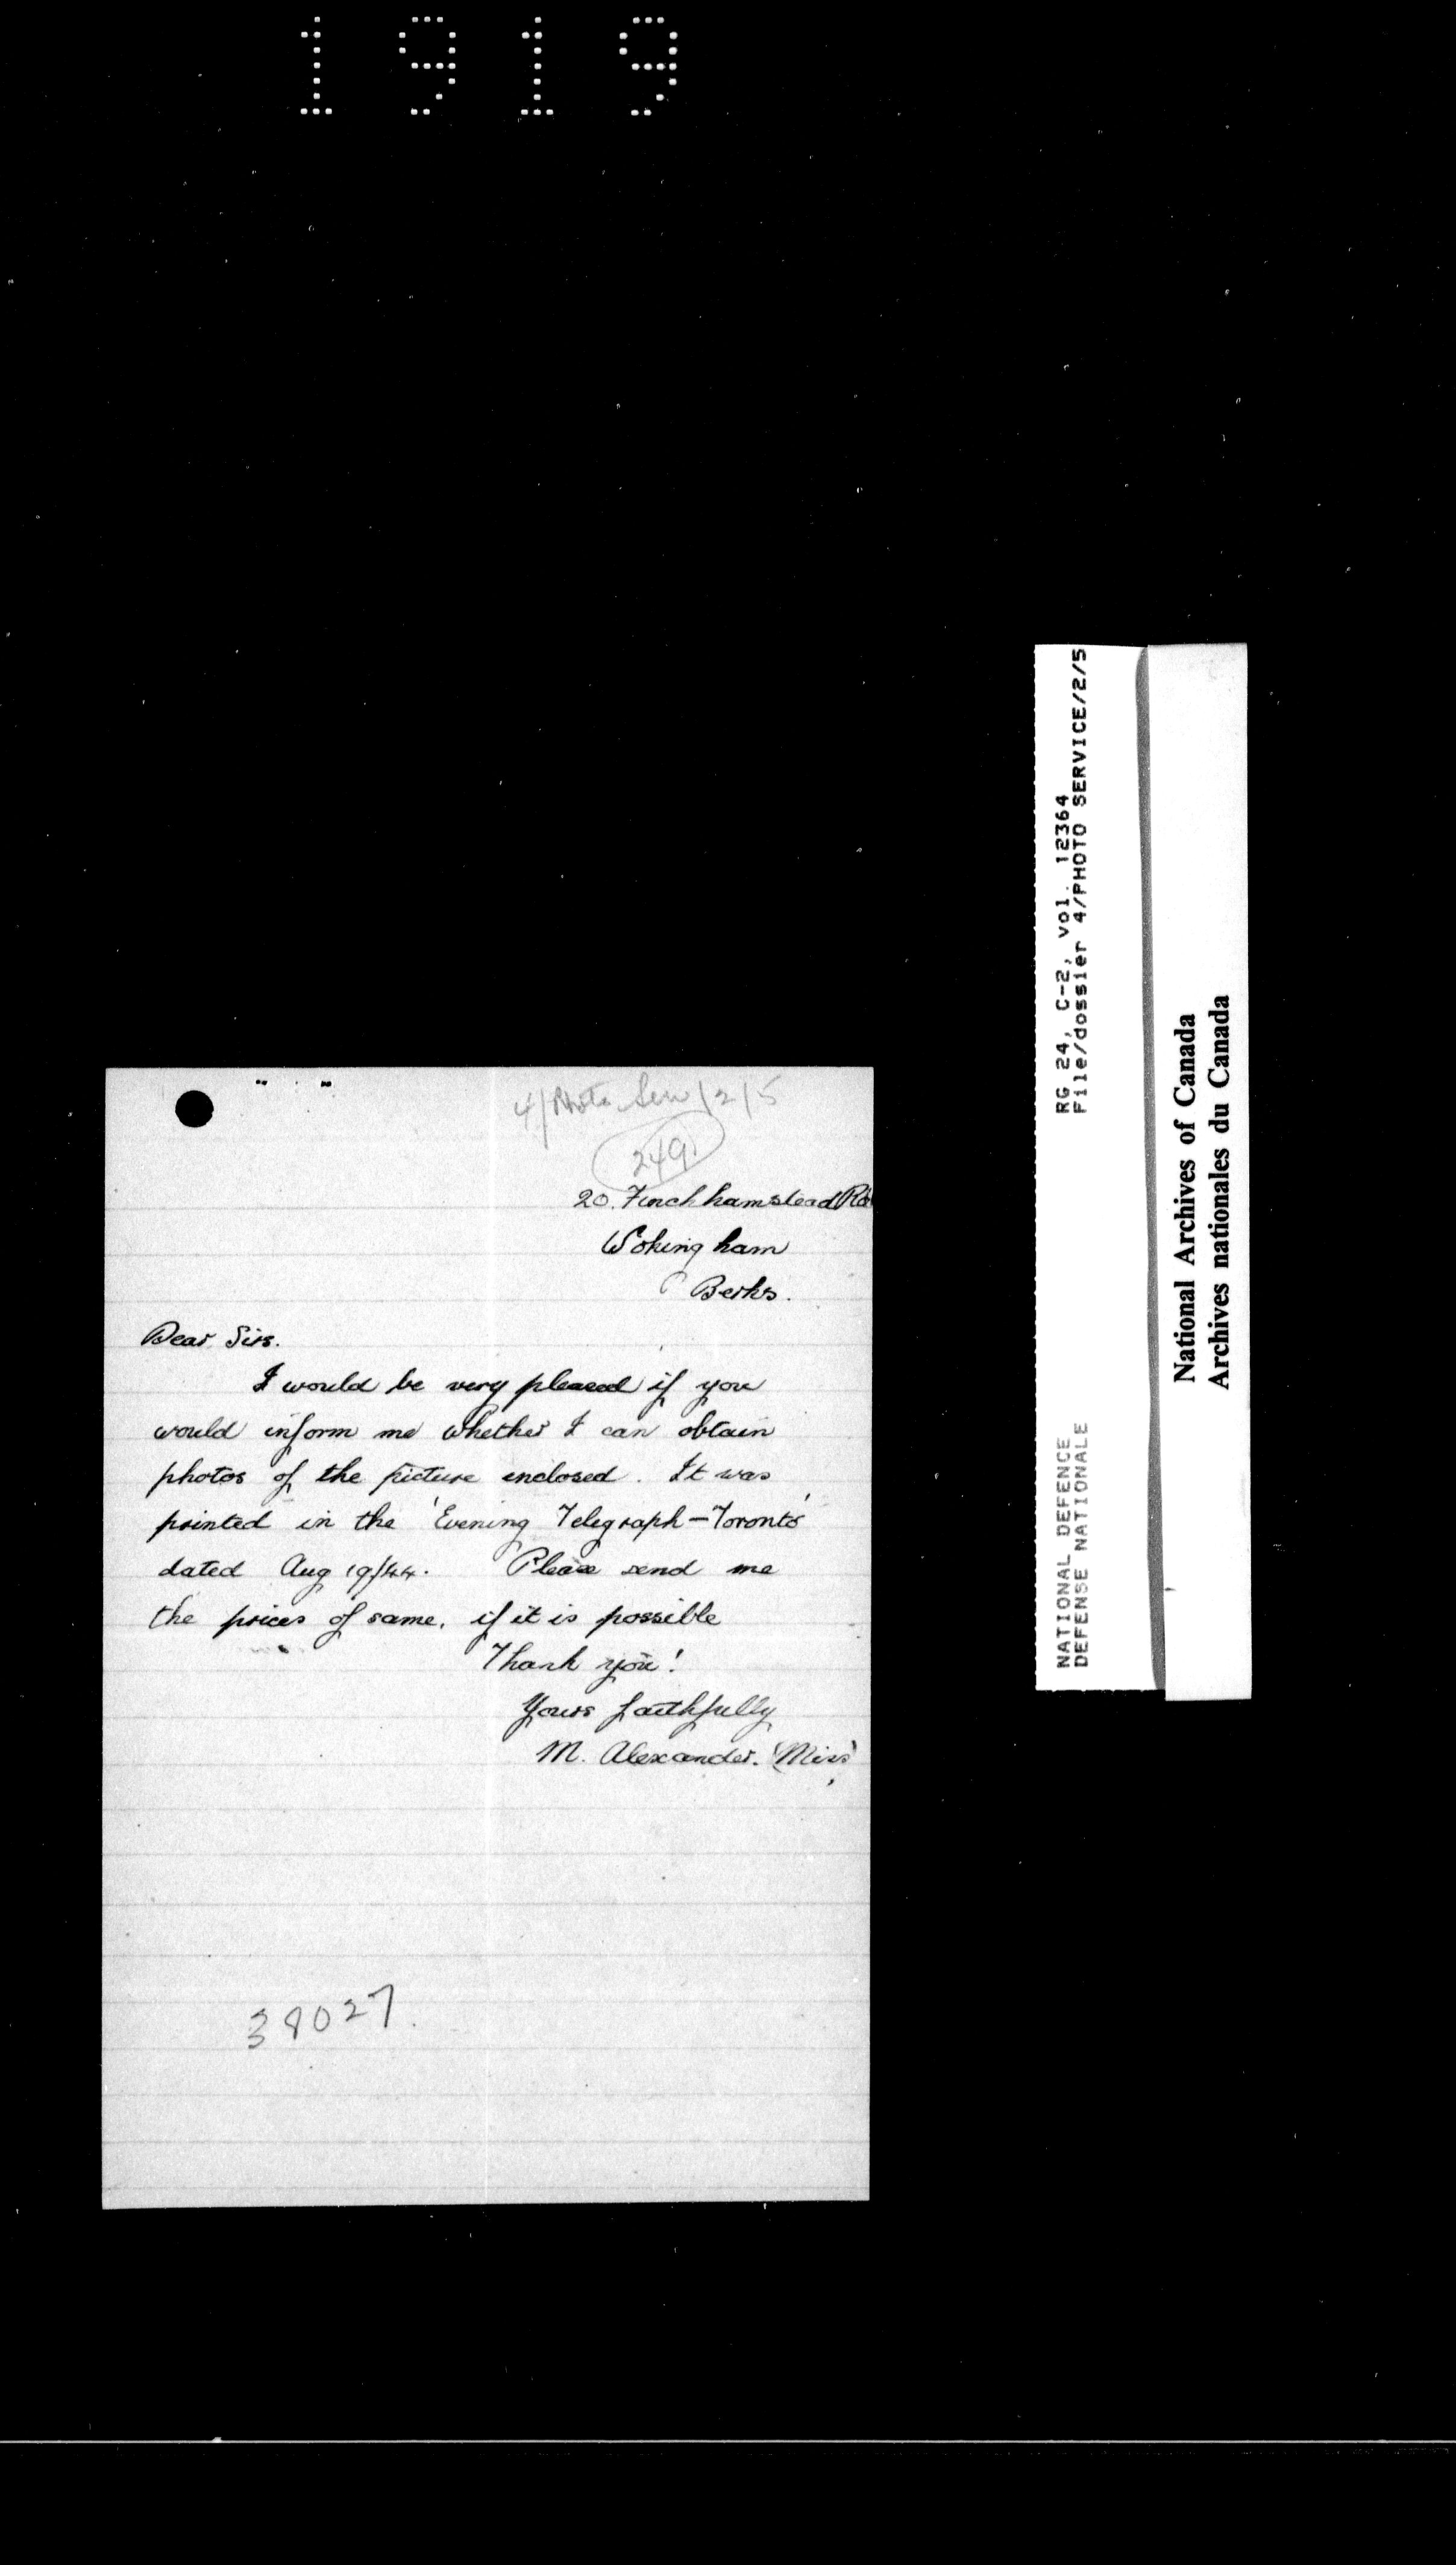 1919
4/Photo Serv/2/5
249
20. Finchhamstead Rd
Wokingham
Berks.
Dear Sirs.
I would be very pleased if you
would inform me whether I can obtain
photos of the picture enclosed. It was
printed in the 'Evening Telegraph-Toronto'
dated Aug 19/44. Please send me
the prices of same, if it is possible
Thank you!
Yours faithfully
M. Alexander. (Miss)
38027.
RG 24, C-2, vol. 12364
File/dossier 4/PHOTO SERVICE/2/5
NATIONAL DEFENCE
DEFENSE NATIONALE
National Archives of Canada
Archives nationales du Canada